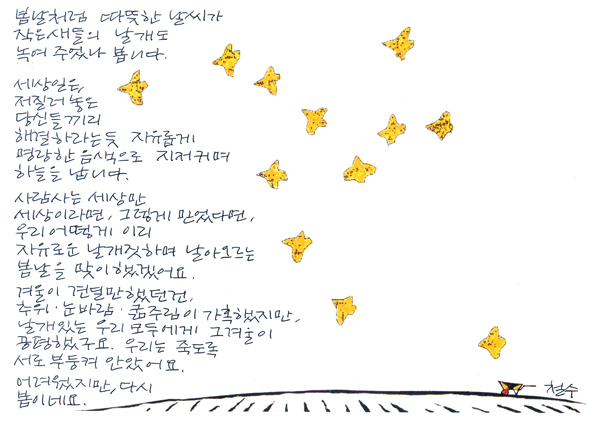 봄날처럼 따뜻한 날씨가
작은새들의 날개도
녹여 주었나 봅니다.
세상일은,
저질러 놓은
당신들끼리
해결하라는듯 자유롭게
명랑한 음색으로 지저귀며
하늘을 납니다.
사람사는 세상만
세상이라면, 그렇게 믿었다면,
우리 어떻게 이리
자유로운 날개짓하며 날아오르는
봄날을 맞이했겠어요.
겨울이 견딜만했던건,
추위·눈바람·굶주림이 가혹했지만,
날개있는 우리 모두에게 그겨울이
공평했구요. 우리는 죽도록
서로 부등켜 안았어요.
어려웠지만, 다시
봄이네요.
철수